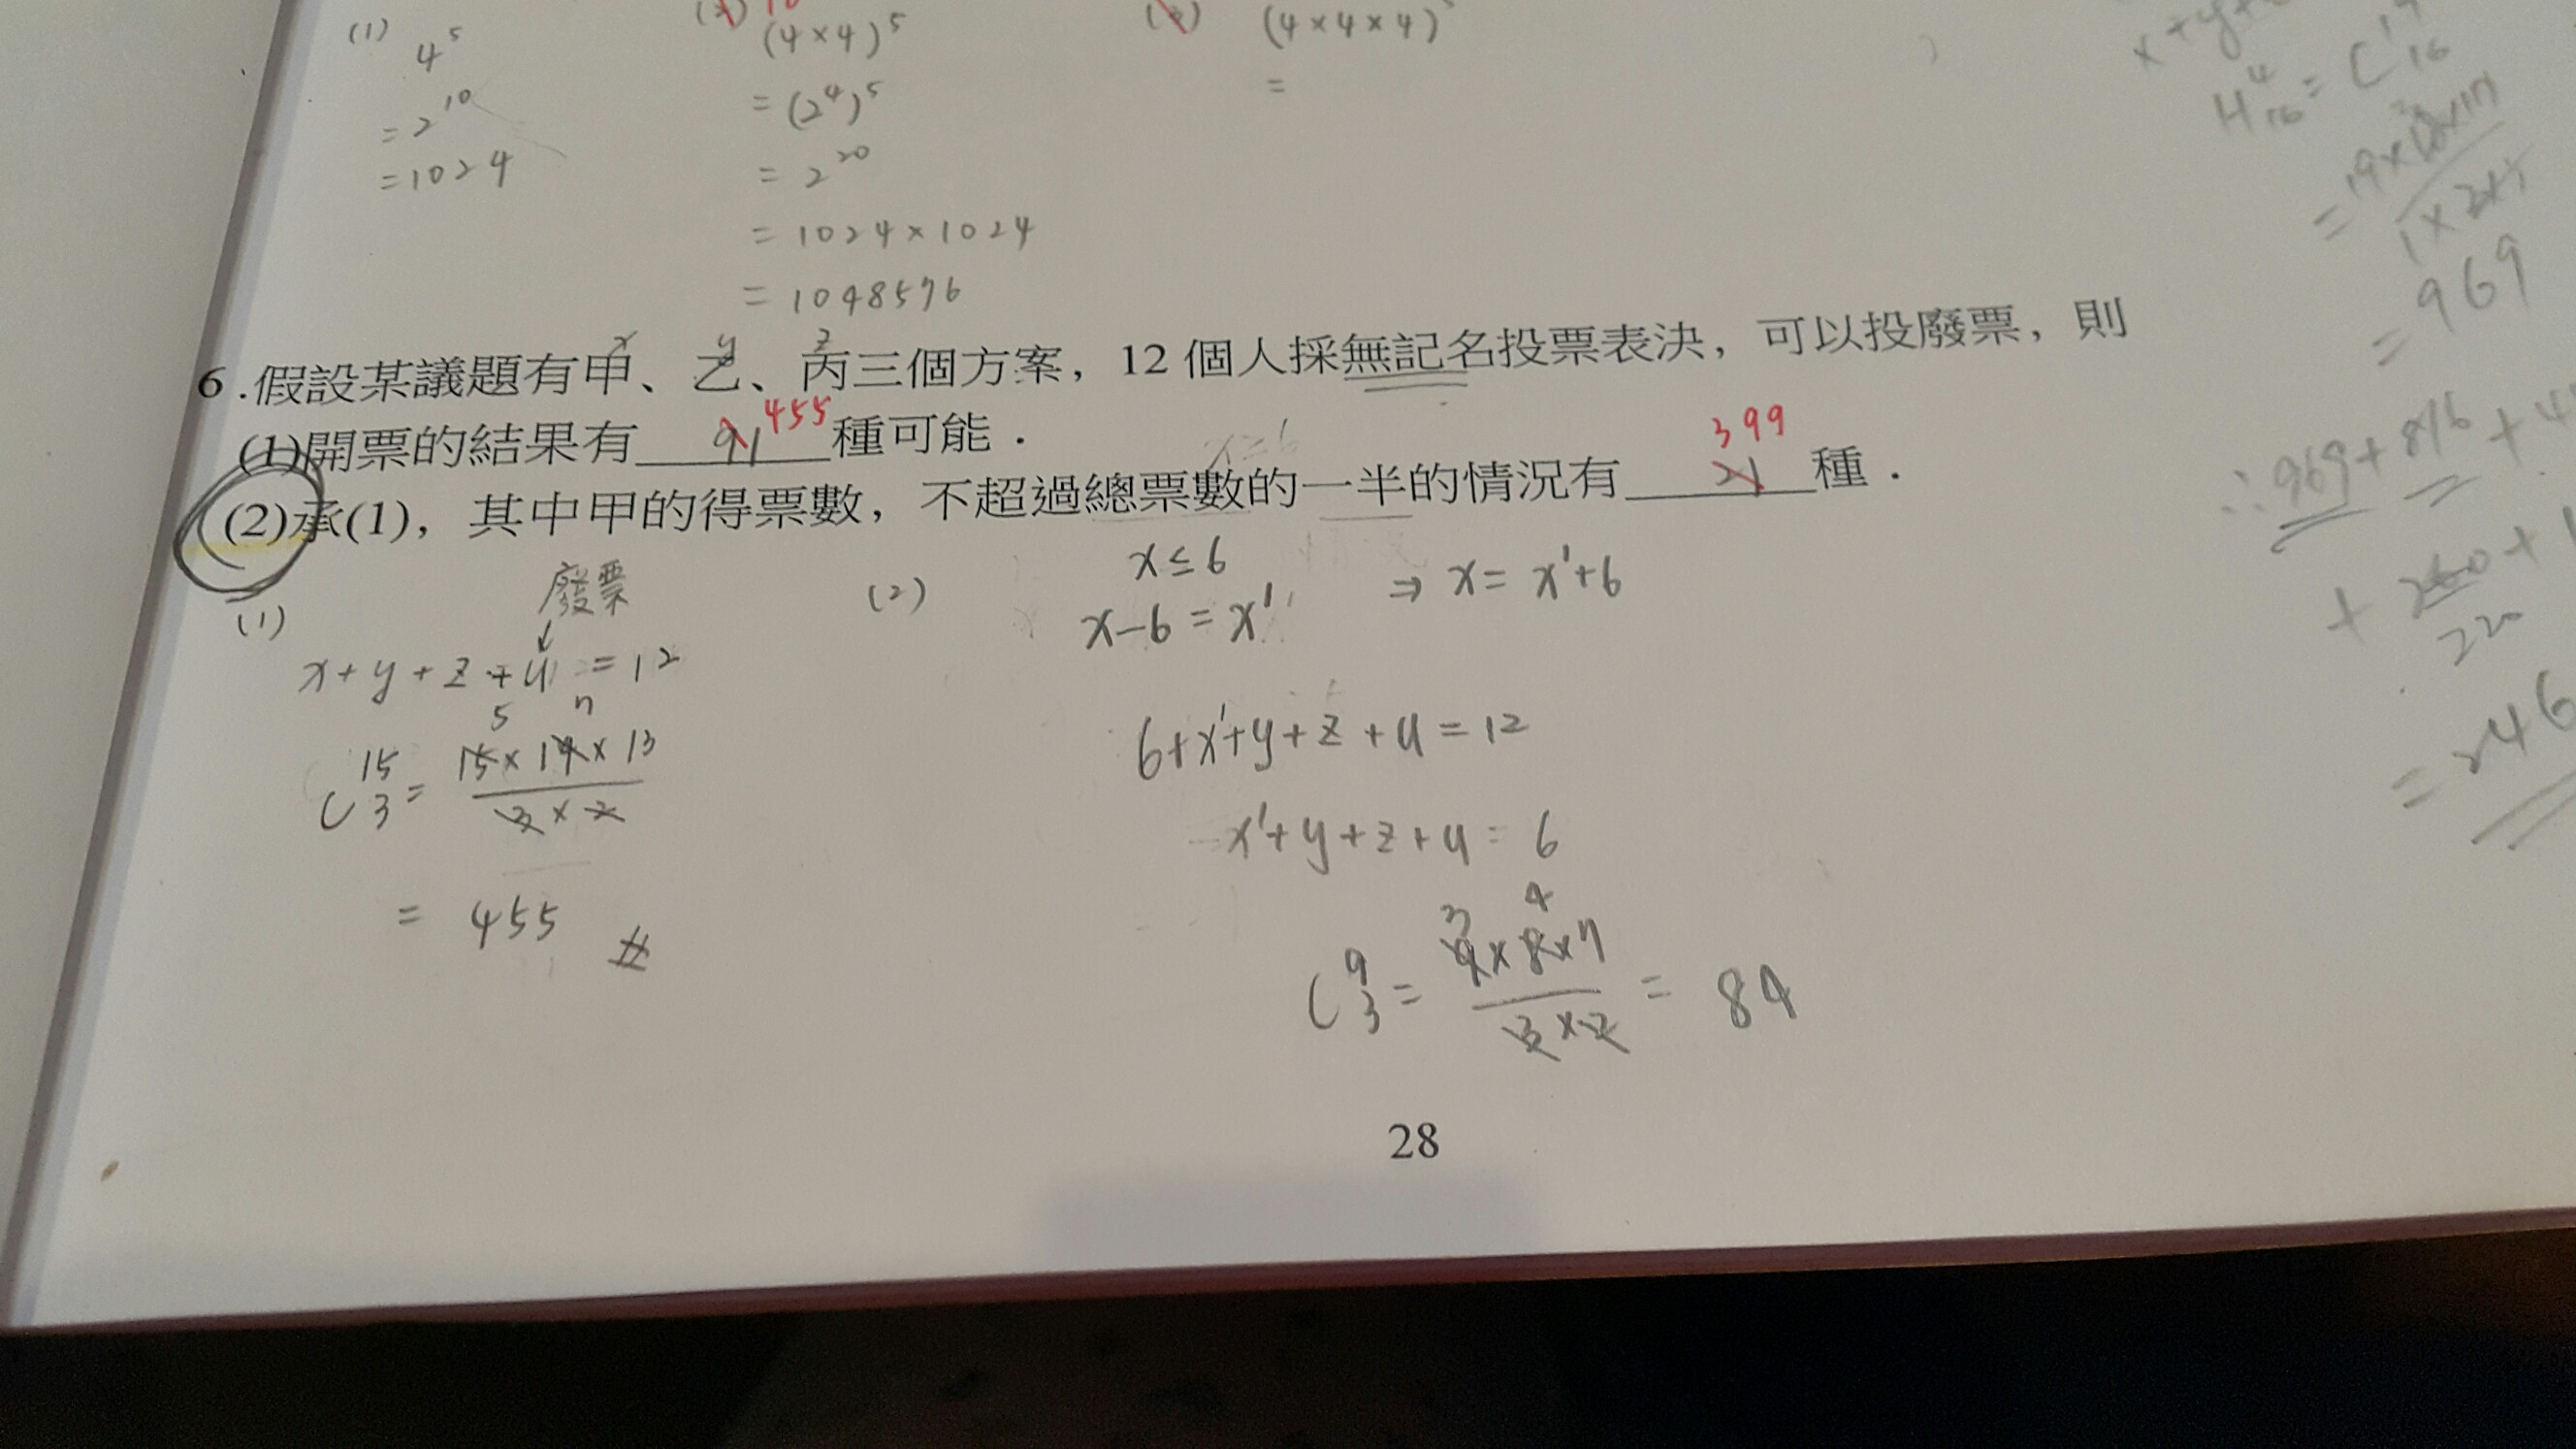 (1) 4⁵
= 2¹⁰
= 1024
(4×4)⁵
= (2⁴)⁵
= 2²⁰
= 1024×1024
= 1048576
(4×4×4)⁵
=
H⁴₁₆ = C¹⁹₁₆
= 19×18×17
1×2×3
= 969
∴ 969+816+
220
= 246
x y z
6.假設某議題有甲、乙、丙三個方案，12 個人採無記名投票表決，可以投廢票，則
(1)開票的結果有 91 455 種可能．
(2)承(1)，其中甲的得票數，不超過總票數的一半的情況有 21 399 種．
(1)
廢票
↓
x+y+z+u=12
5 7
C¹⁵₃ = 15×14×13
3×2
= 455 #
(2)
x≤6
x-6=x' ⇒ x=x'+6
6+x'+y+z+u=12
x'+y+z+u=6
3 4
C⁹₃ = 9×8×7 = 84
3×2
28